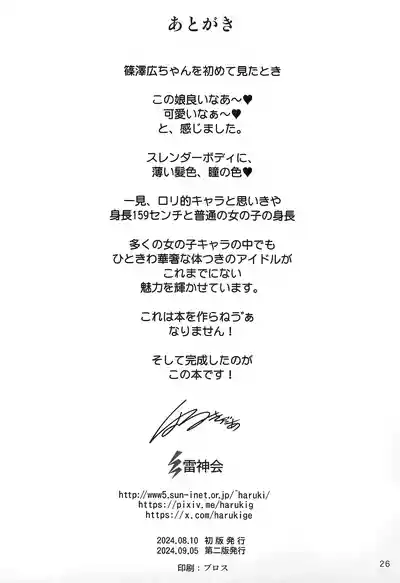 あとがき
篠澤広ちゃんを初めて見たとき
この娘良いなあ～♥
可愛いなぁ～♥
と、感じました。
スレンダーボディに、
薄い髪色、瞳の色♥
一見、ロリ的キャラと思いきや
身長159センチと普通の女の子の身長
多くの女の子キャラの中でも
ひときわ華奢な体つきのアイドルが
これまでにない
魅力を輝かせています。
これは本を作らねゔぁ
なりません！
そして完成したのが
この本です！
はるきゲネ
雷神会
http://www5.sun-inet.or.jp/~haruki/
https://pixiv.me/harukig
https://x.com/harukige
2024.08.10 初版発行
2024.09.05 第二版発行
印刷：プロス
26